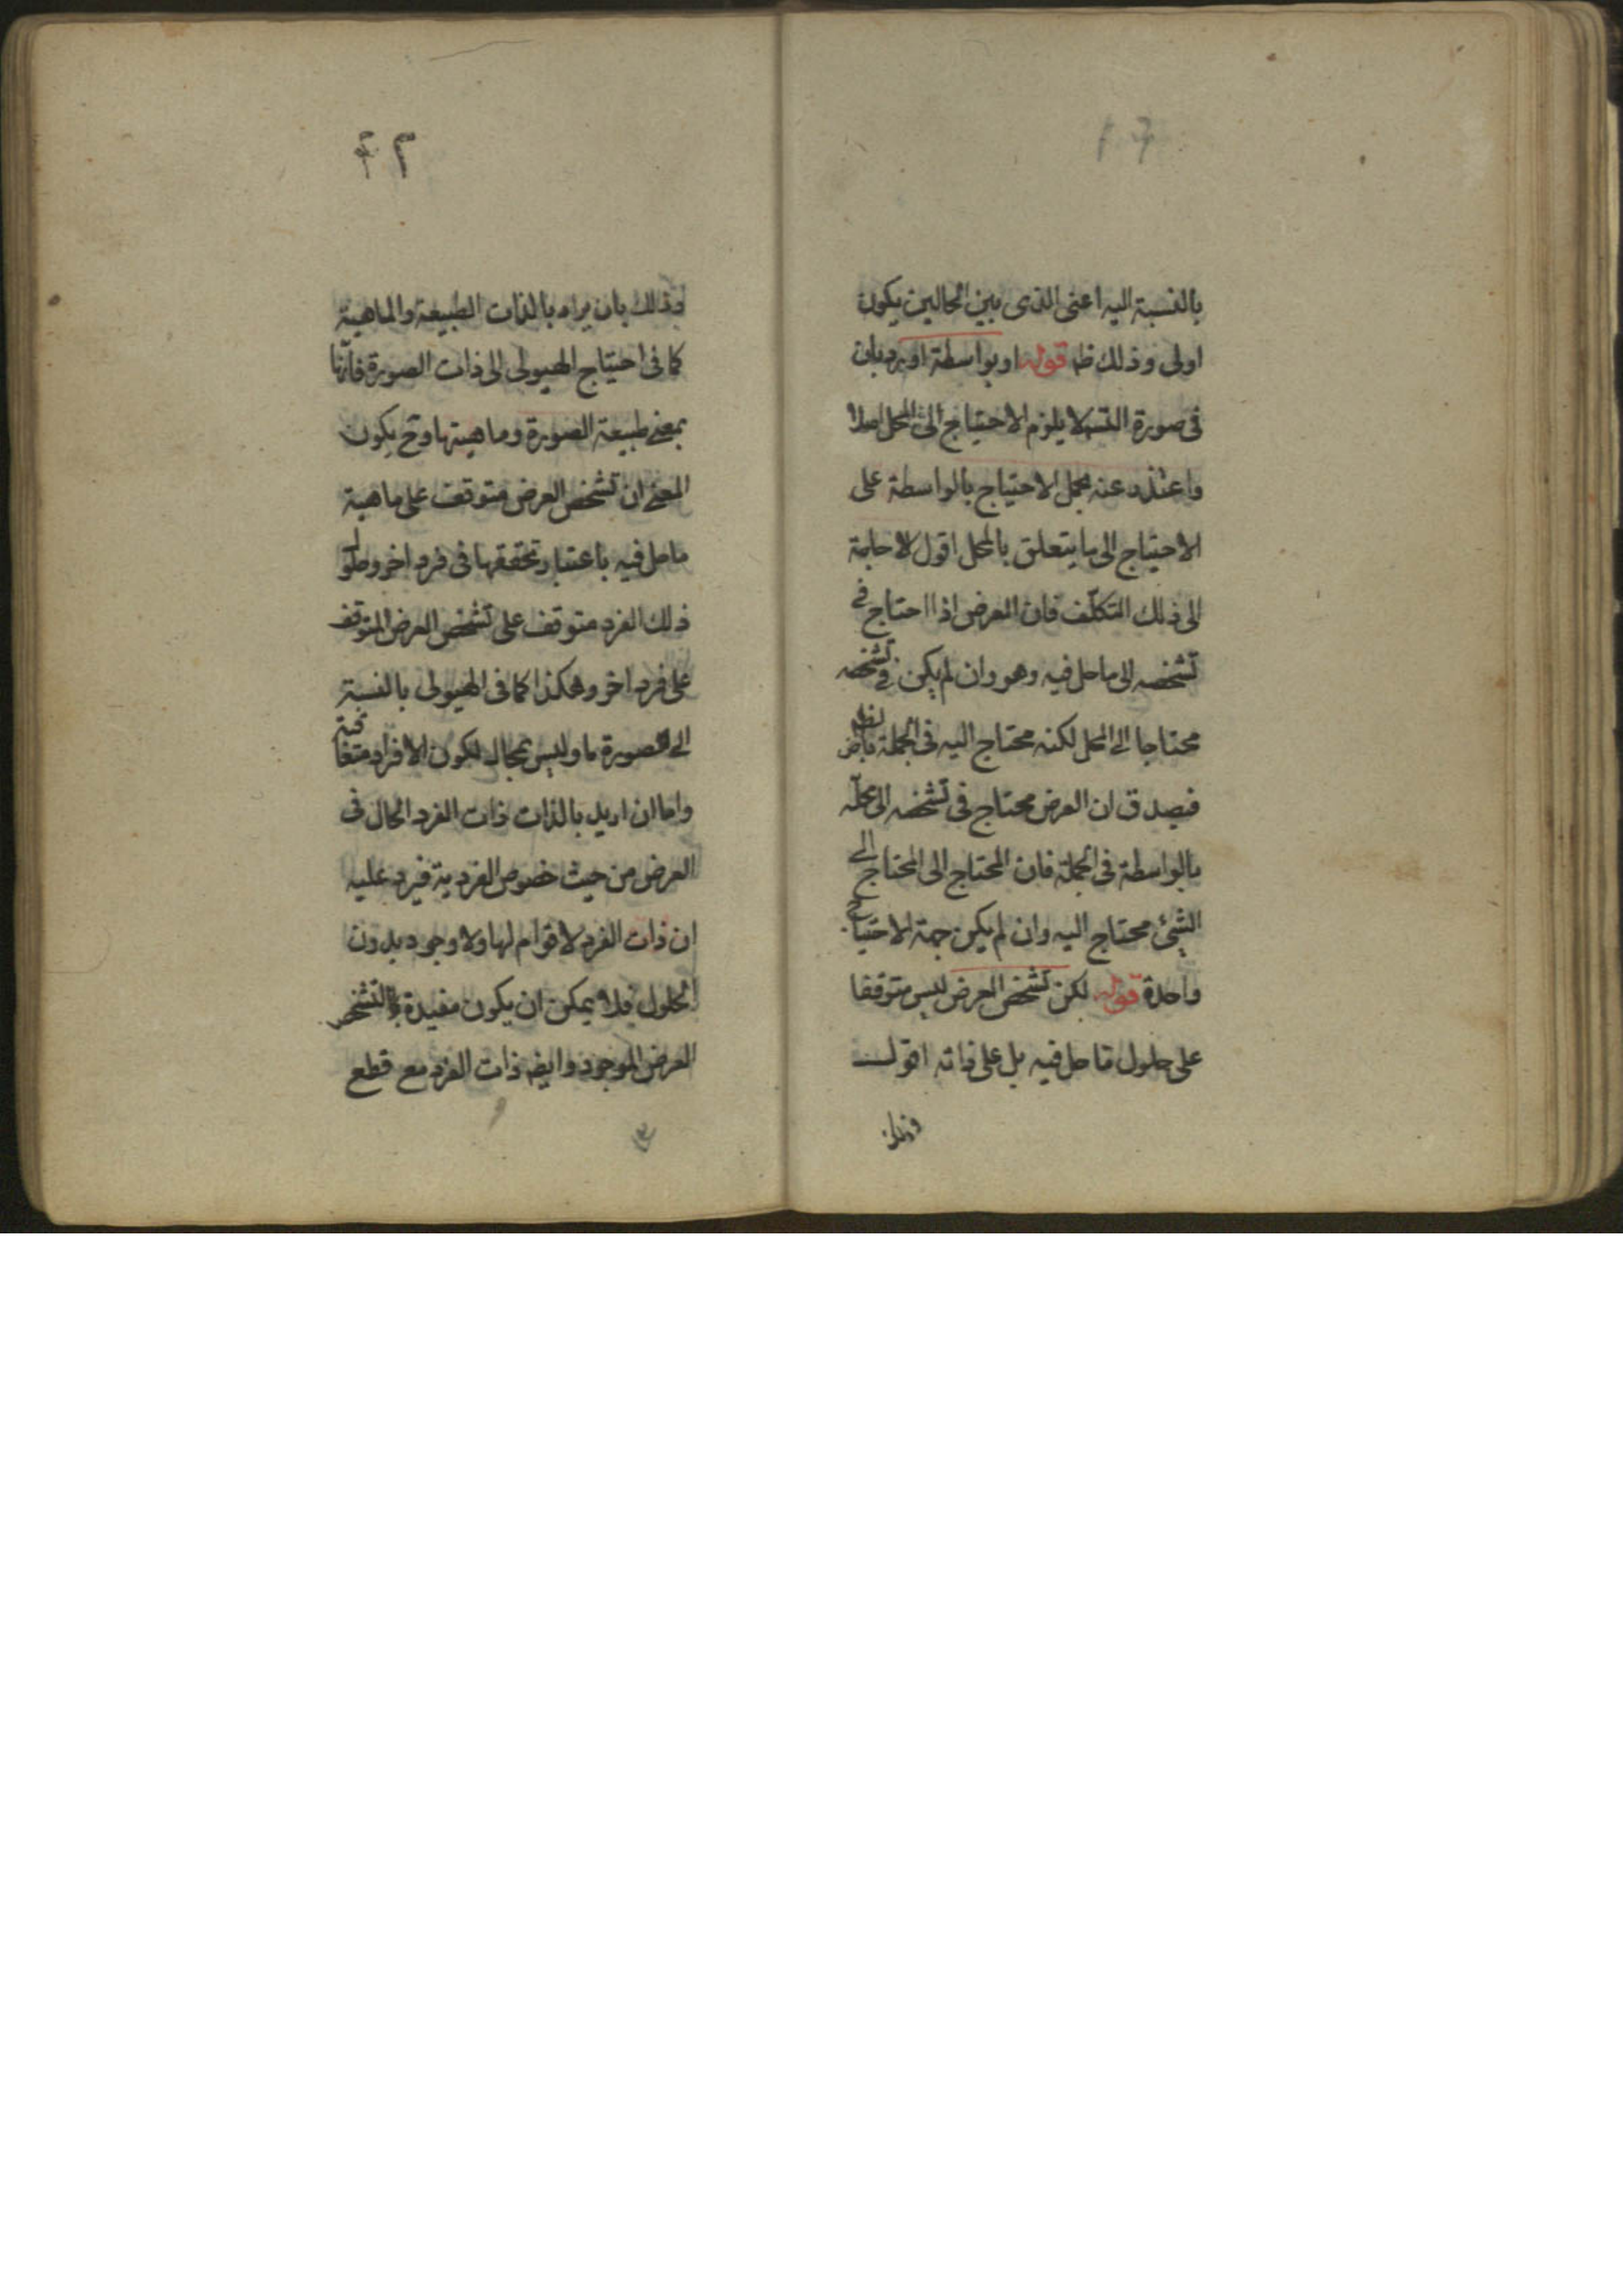 بالنسبة اليه اعنى الذى بين الحالين يكون
اولى وذلك ظ قوله او بواسطة اورد بان
فى صورة التسـ لا يلزم الاحتياج الى المحل اصلا
واعتذر عنه بحمل الاحتياج بالواسطة على
الاحتياج الى ما يتعلق بالمحل اقول لا حاجة
الى ذلك التكلّف فان العرض اذا احتاج فى
تشخصه الى ما حل فيه وهو وان لم يكن فى تشخصه
محتاجا الى المحل لكنه محتاج اليه فى الجملة
فيصدق ان العرض محتاج فى تشخصه الى محلّه
بالواسطة فى الجملة فان المحتاج الى المحتاج الى
الشئ محتاج اليه وان لم يكن جهة الاحتياج
واحدة قوله لكن تشخص العرض ليس متوقفا
على حلول ما حل فيه بل على ذاته اقول
وذلك
٤٢
وذلك بان يراد بالذات الطبيعة والماهية
كما فى احتياج الهيولى الى ذات الصورة فانّها
بمعنى طبيعة الصورة وماهيتها وح يكون
المعنى ان تشخص العرض متوقف على ماهية
ما حل فيه باعتبار تحققها فى فرد اخر وحلول
ذلك الفرد متوقف على تشخص العرض المتوقف
على فرد اخر وهكذا كما فى الهيولى بالنسبة
الى صورة ما وليس بمحال لكون الافراد متعاقبة
واما ان اريد بالذات ذات الفرد الحال فى
العرض من حيث خصوص الفردية فيرد عليه
ان ذات الفرد لا قوام لها ولا وجود بدون
الحلول فلا يمكن ان يكون مفيدة لتشخص
العرض الموجود وايضا ذات الفرد مع قطع